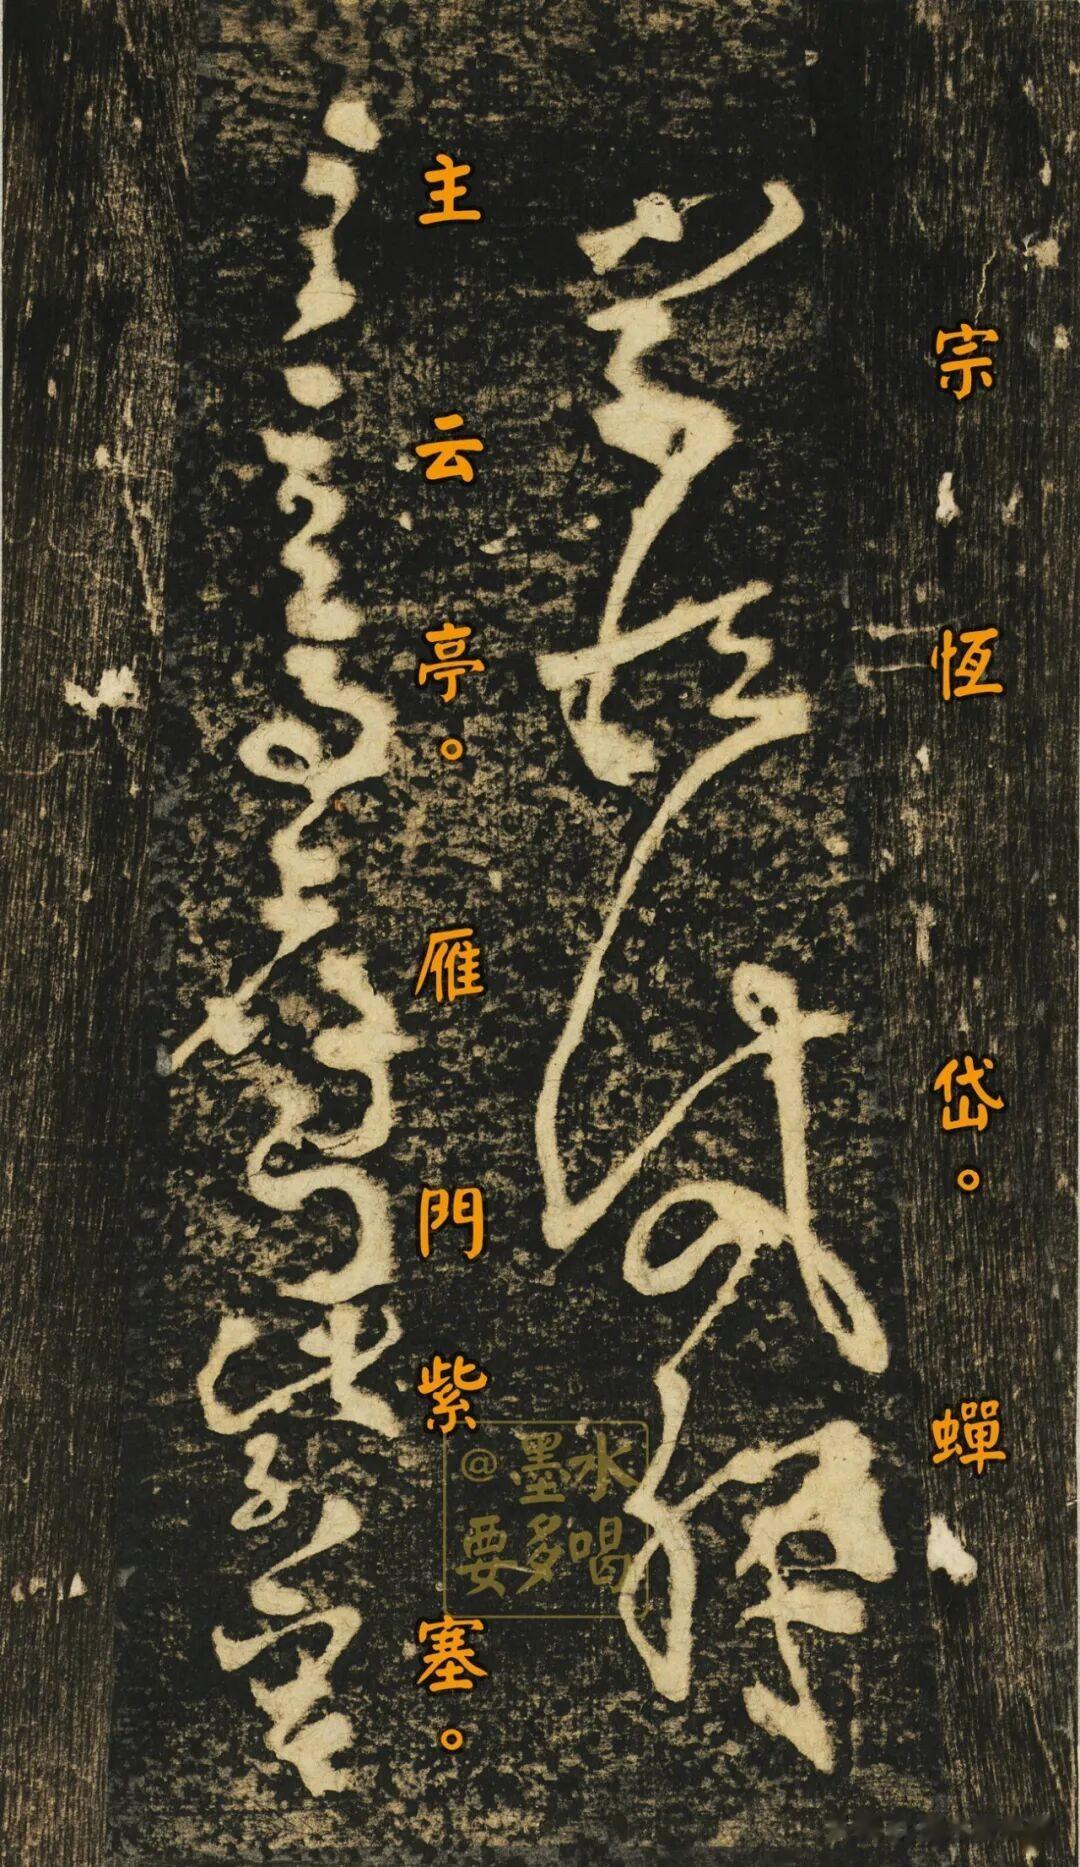 宗恆岱。蟬
主云亭。雁門紫塞。
@墨水
要多喝